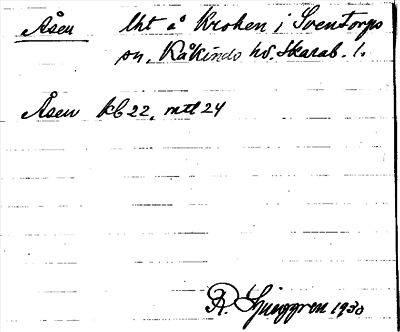 Åsen lht å Kroken i Sventorps
sn, Kåkinds hd. Skarab. l.
Åsen kb 22, mtl 24
R. Ljunggren 1930